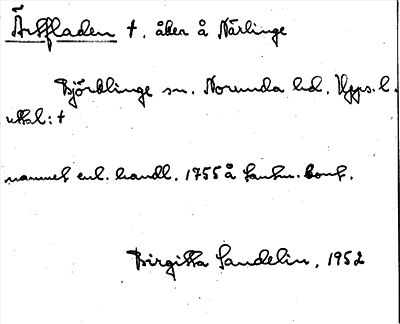 Ärtfladen †. åker å Närlinge
Björklinge sn. Norunda hd. Upps. l.
uttal: †
namnet enl. handl. 1755 å Lantm. kont.
Birgitta Sandelin, 1952